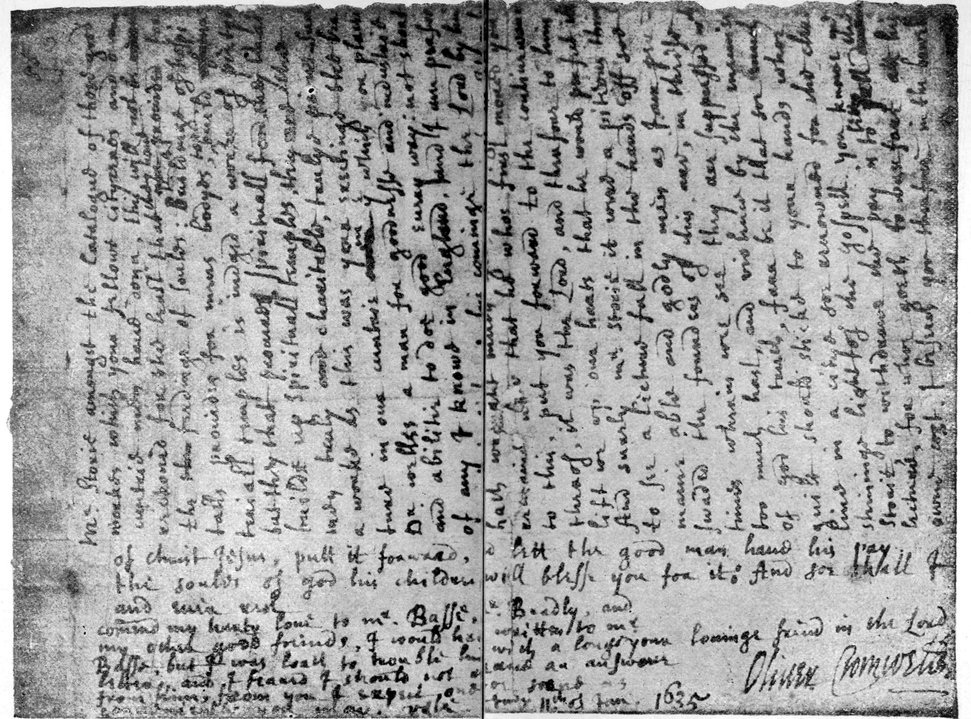 Mr Storie amongst the Catalogue of those good
workes which your fellowe cityzenes and our
cuntriemen have donn, this will not be
reckoned for the least that they have provided
for the feedinge of soules: Buildinge of hospi
talls provides for mens bodyes, to build
teriall temples is iudged a worke of pietye
but they that procure spirituall food, they that
build up spirituall temples, they are the
men truly charitable, trulye pious
a worke as this was your erectinge the
ture in our cuntrie in the which you placed
Dr welles a man for goodnesse and industrie
and abilitie to doe good every way, not short
of any I knowe in England, and I am perswa
his cominge the Lord by him
hath wrought much
remaines that he whoe first moved you
to this, put you forward to the continewance
therof, it was the Lord, and therfore to him
lift we up our harts that he would perfect it
And surely mr Storie it were a pitious thinge
to see a lecture fall in the hands off soe
manie able and godly men as I am per
swaded the founders of this are, in theise
times wherin wee see they are suppressed with
too much hast, and violence by the enemies
of god his truth, farr be it that soe much
guilt should sticke to your hands, whoe
live in a citye so renowned for the clere
shininge light of the gospell, you knowe mr
Storie to withdrawe the pay is to lett fall the
lecture, for whoe goeth to warfare at his
owne cost, I beseech you therfore in the bowells
of christ Jesus, putt it forward, lett the good man have his pay
The soules of god his children will blesse you for it: And soe shall I
and ever rest
your lovinge frind in the Lord
Oliver Cromwell
comend my harty love to mr Basse, mr Beadly, and
my other good freinds, I would have written to mr
Basse, but I was loath to trouble him with a longe
letter, and I feared I should not receave an answer
from him, from you I expect one
11th of Jan. 1635